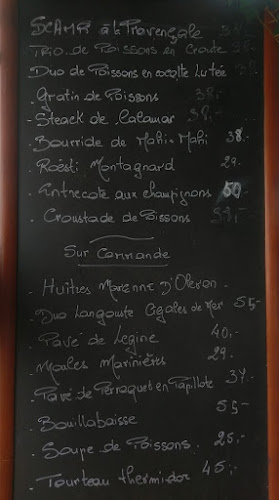 SCAMPI à la Provençale
TRIO de Poissons en Croute 38.-
Duo de Poissons en cocotte Lutée 38.-
. Gratin de Poissons 38.-
. Steack de Calamar 38.-
. Bourride de Mahi-Mahi 38.-
. Roësti Montagnard 29.-
. Entrecote aux champignons 50.-
. Croustade de Poissons
Sur Commande
. Huîtres Marenne D'Oleron.
. Duo Langouste Cigales de Mer 55.-
. Pavé de Légine 40.-
. Moules Marinières 29.-
. Pavé de Perroquet en Papillote 37.-
. Bouillabaisse 55.-
. Soupe de Poissons. 25.-
. Tourteau thermidor 45.-